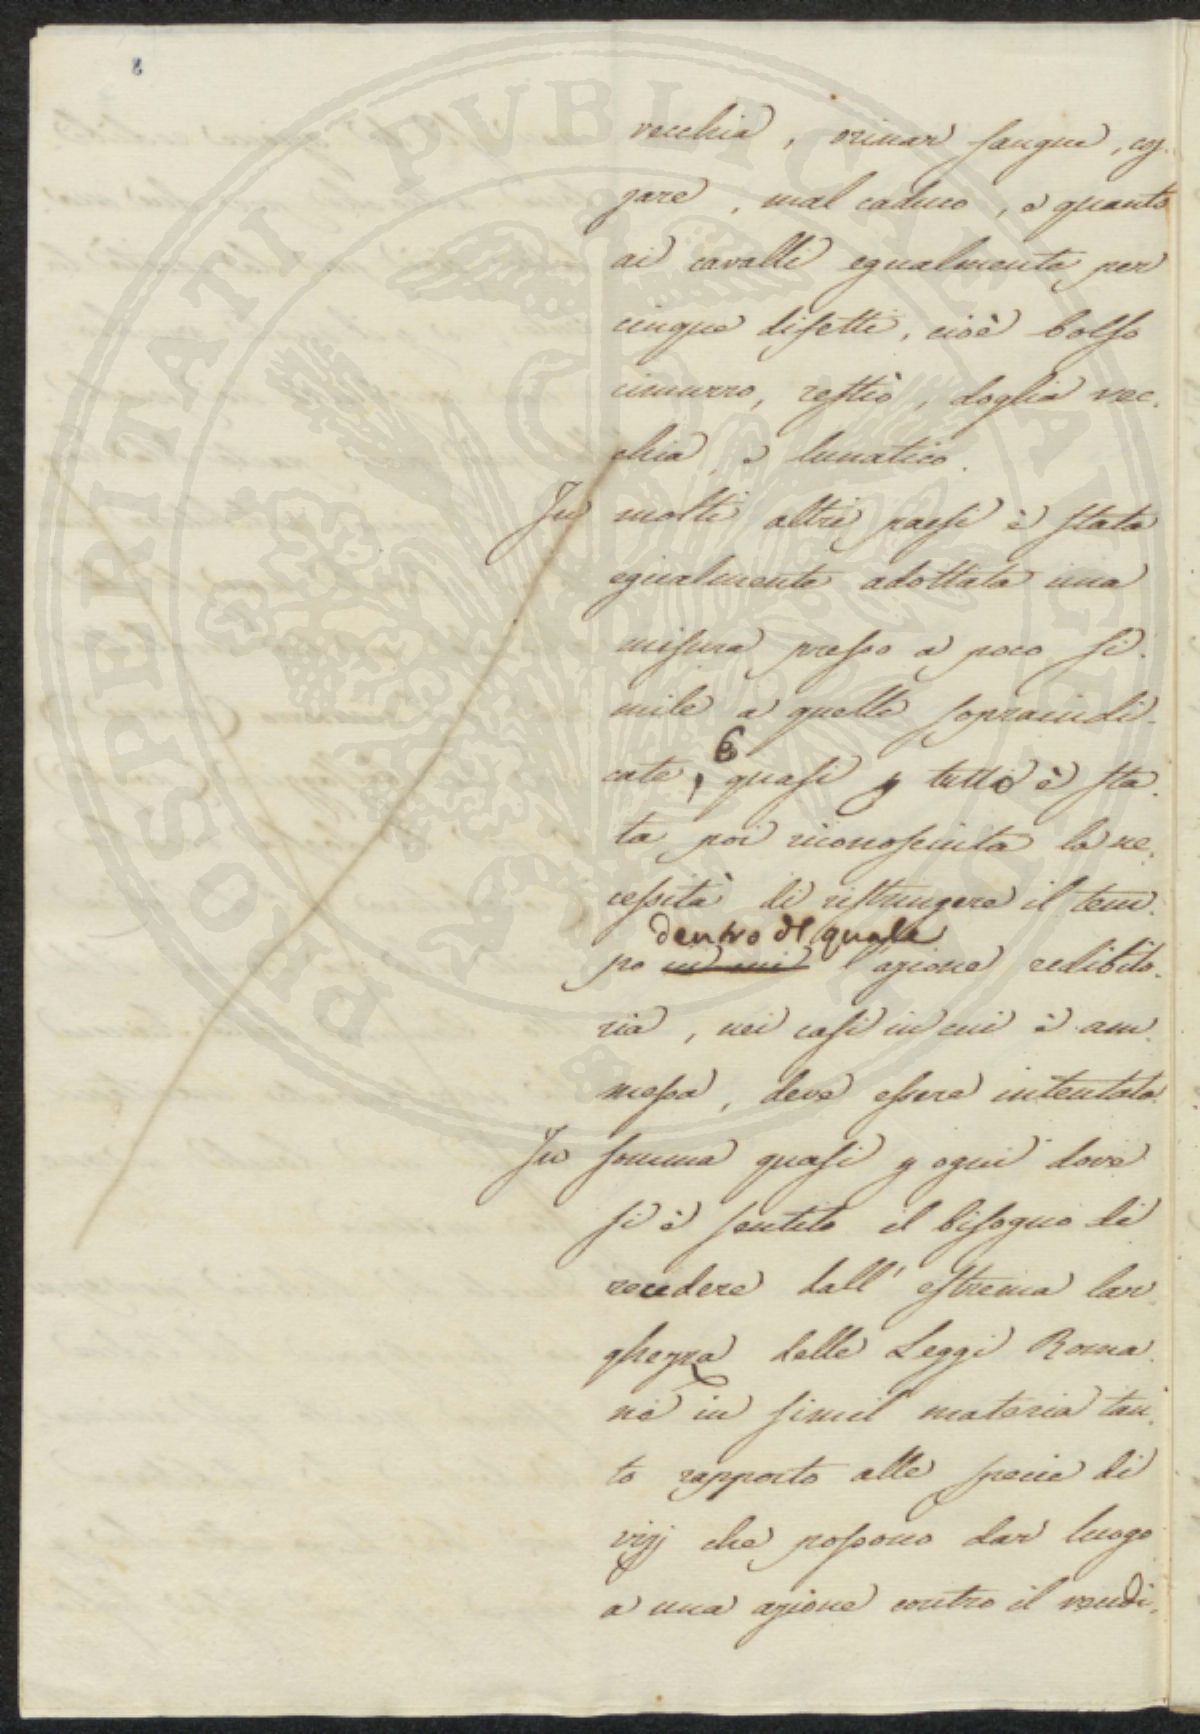 8
PROSPERITATI PUBLICAE AUGENDAE
vecchia, orinar sangue, coz.
zare, mal caduco, e quanto
ai cavalli egualmente per
cinque difetti, cioè bolso
cimurro, restìo, doglia vec.
chia, e lunatico.
In molti altri paesi è stata
egualmente adottata una
misura presso a poco si.
mile a quelle sopraindi.
cate, E quasi p tutto è sta.
ta poi riconosciuta la ne.
cessità di ristringere il tem.
dentro il quale
po in cui l'azione redibito.
ria, nei casi in cui è am.
messa, deve essere intentata.
In somma quasi p ogni dove
si è sentito il bisogno di
recedere dall' estrema lar.
ghezza delle Leggi Roma.
ne in simil materia tan.
to rapporto alle specie di
vizj che possono dar luogo
a una azione contro il vendi.